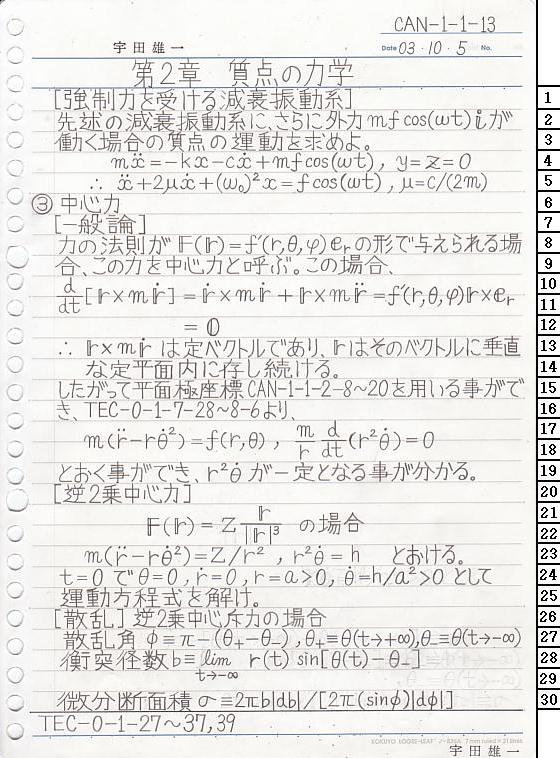 CAN-1-1-13
宇田雄一 Date 03・10・5 No.
第2章 質点の力学
[強制力を受ける減衰振動系]
先述の減衰振動系に、さらに外力 mf cos(ωt) 𝕚 が
働く場合の質点の運動を求めよ。
mẍ=-kx-cẋ+mf cos(ωt) , y=z=0
∴ ẍ+2μẋ+(ω₀)²x=f cos(ωt) , μ=c/(2m)
③ 中心力
[一般論]
力の法則が 𝔽(𝕣)=f(r,θ,φ)𝕖r の形で与えられる場
合、この力を中心力と呼ぶ。この場合、
d/dt [𝕣×m𝕣̇] = 𝕣̇×m𝕣̇ + 𝕣×m𝕣̈ =f(r,θ,φ)𝕣×𝕖r
= 𝟘
∴ 𝕣×m𝕣̇ は定ベクトルであり、𝕣はそのベクトルに垂直
な定平面内に存し続ける。
したがって平面極座標CAN-1-1-2-8~20を用いる事がで
き、TEC-0-1-7-28~8-6より、
m(r̈-rθ̇²)=f(r,θ) , m/r d/dt (r²θ̇)=0
とおく事ができ、r²θ̇ が一定となる事が分かる。
[逆2乗中心力]
𝔽(𝕣)=Z 𝕣/|𝕣|³ の場合
m(r̈-rθ̇²)=Z/r² , r²θ̇=h とおける。
t=0 で θ=0 , ṙ=0 , r=a>0 , θ̇=h/a²>0 として
運動方程式を解け。
[散乱] 逆2乗中心斥力の場合
散乱角 φ≡π-(θ₊-θ₋) , θ₊≡θ(t→+∞) , θ₋≡θ(t→-∞)
衝突径数 b≡ lim t→-∞ r(t) sin[θ(t)-θ₋]
微分断面積 σ≡2πb|db|/[2π(sinφ)|dφ|]
TEC-0-1-27~37,39
KOKUYO LOOSE-LEAF ノ-836A 7mm ruled×31 lines
宇田雄一
1
2
3
4
5
6
7
8
9
10
11
12
13
14
15
16
17
18
19
20
21
22
23
24
25
26
27
28
29
30